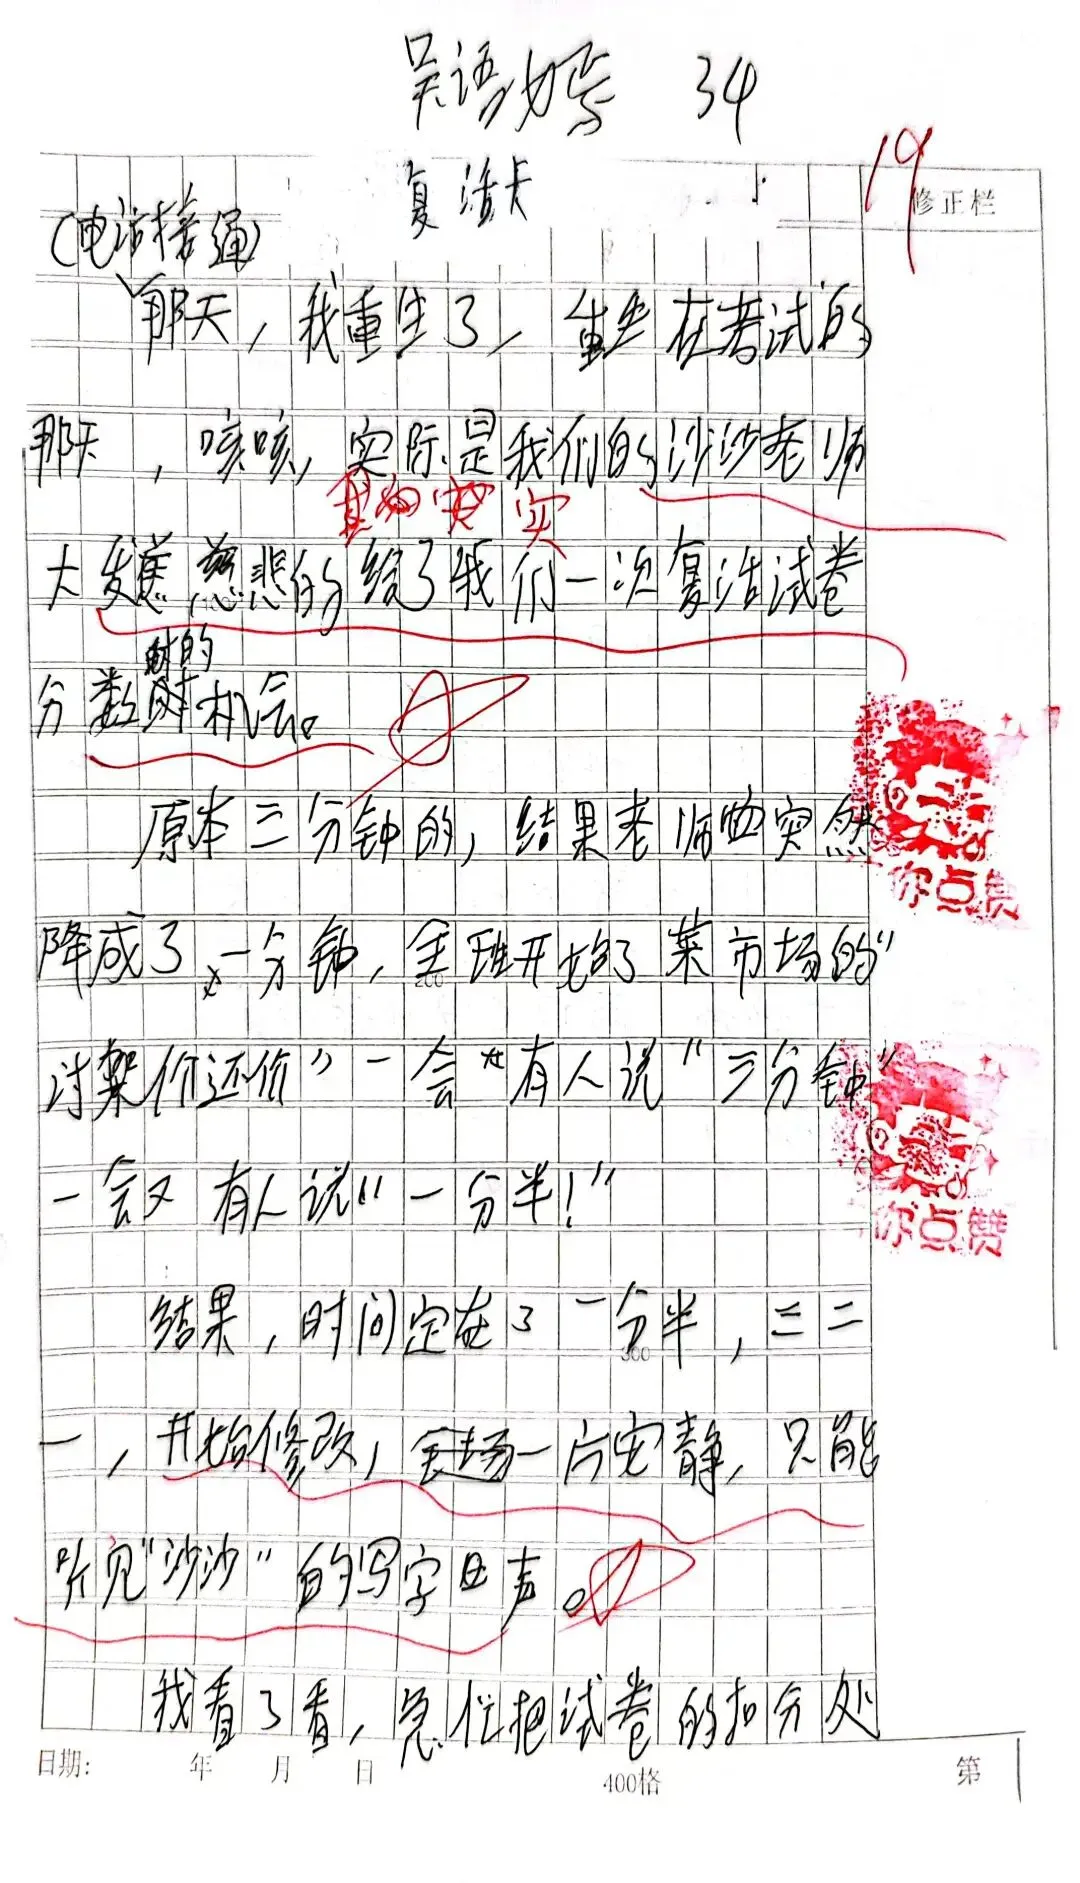 吴语嫣 34
19
复活卡
修正栏
(电话接通)
那天，我重生了，重生在考试的
那天，咳咳，实际是我们的沙沙老师
实
大发慈悲的给了我们一次复活试卷
的
分数的机会。
原本三分钟的，结果老师突然
降成了一分钟，全班开始了菜市场的“
200
讨架价还价”一会有人说“三分钟”
一会又有人说“一分半！”
结果，时间定在了一分半，三二
300
一，开始修改，全场一片安静，只能
听见“沙沙”的写字声。
我看了看，急忙把试卷的扣分处
你点赞
你点赞
日期： 年 月 日 400格 第